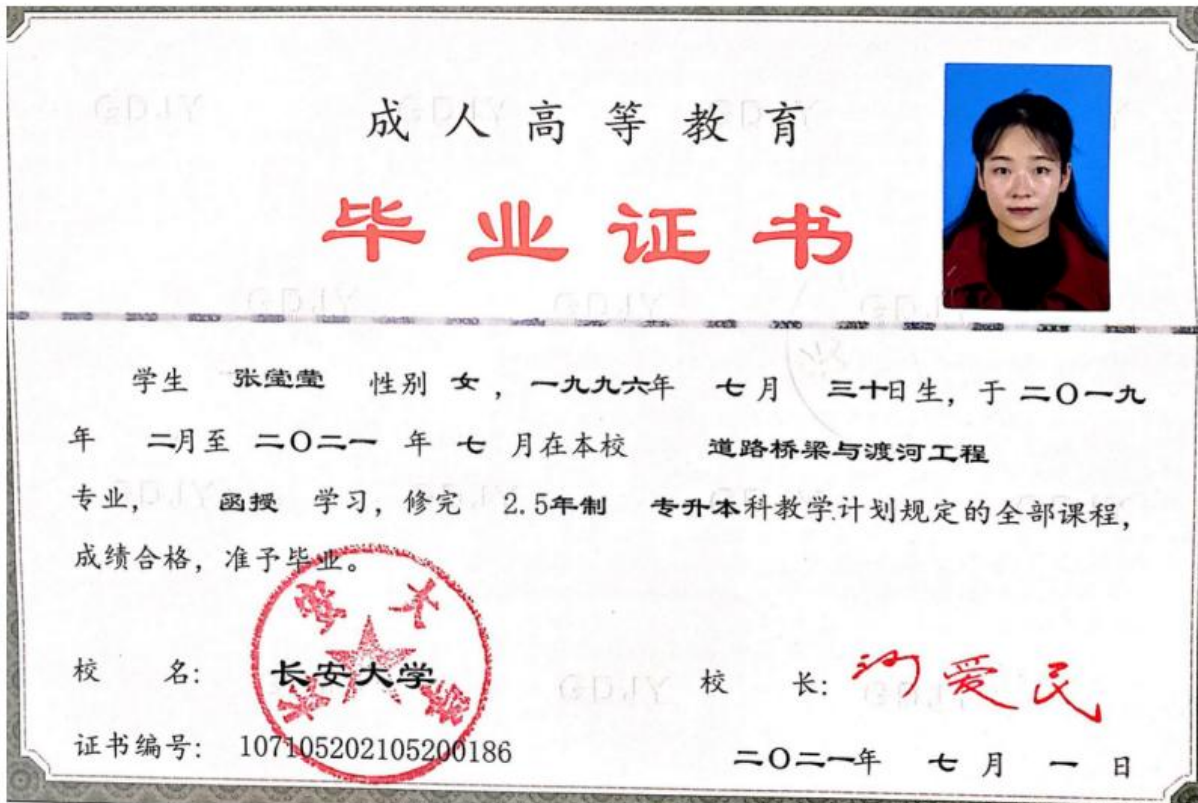 成人高等教育
毕业证书
学生 张莹莹 性别 女，一九九六年 七月 三十日生，于二〇一九
年 二月至 二〇二一 年 七 月在本校 道路桥梁与渡河工程
专业， 函授 学习，修完 2.5年制 专升本科教学计划规定的全部课程，
成绩合格，准予毕业。
长安大学
校 名： 长安大学
校 长： 沙爱民
证书编号： 107105202105200186
二〇二一年 七 月 一 日